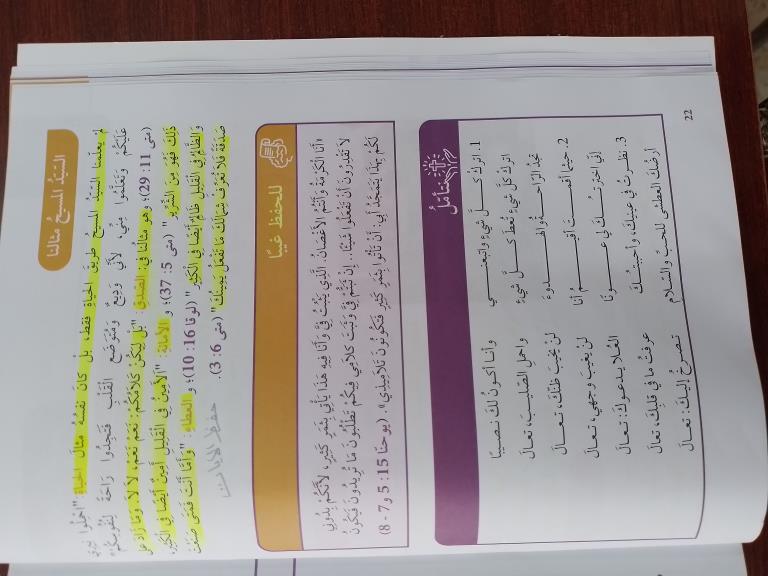 السَّيِّدُ المَسيحُ مِثالُنا
لم يعلّمنا السَّيِّدُ المسيحُ طريقَ الحياةِ فقط، بل كانَ نفسُهُ مثالَ الحياةِ: "اِحْمِلُوا نِيرِي
عَلَيْكُمْ وَتَعَلَّمُوا مِنِّي، لأَنِّي وَدِيعٌ وَمُتَوَاضِعُ الْقَلْبِ فَتَجِدُوا رَاحَةً لِنُفُوسِكُمْ"
(متى 11: 29)؛ وهو مثالُنا في: الصّدق: "بَلْ لِيَكُنْ كَلاَمُكُمْ: نَعَمْ نَعَمْ، لاَ لاَ. وَمَا زَادَ عَلَى
ذلِكَ فَهُوَ مِنَ الشِّرِّيرِ" (متى 5: 37)؛ و الأمانة: "اَلأَمِينُ فِي الْقَلِيلِ أَمِينٌ أَيْضًا فِي الْكَثِيرِ،
وَالظَّالِمُ فِي الْقَلِيلِ ظَالِمٌ أَيْضًا فِي الْكَثِيرِ" (لوقا 16: 10)؛ و العطاء: "وَأَمَّا أَنْتَ فَمَتَى صَنَعْتَ
صَدَقَةً فَلاَ تُعَرِّفْ شِمَالَكَ مَا تَفْعَلُ يَمِينُكَ" (متى 6: 3).
حفظ الآيات
للحفظ غيبًا
«أَنَا الْكَرْمَةُ وَأَنْتُمُ الأَغْصَانُ. الَّذِي يَثْبُتُ فِيَّ وَأَنَا فِيهِ هذَا يَأْتِي بِثَمَرٍ كَثِيرٍ، لأَنَّكُمْ بِدُونِي
لاَ تَقْدِرُونَ أَنْ تَفْعَلُوا شَيْئًا.. إِنْ ثَبَتُّمْ فِيَّ وَثَبَتَ كَلاَمِي فِيكُمْ تَطْلُبُونَ مَا تُرِيدُونَ فَيَكُونُ
لَكُمْ بِهذَا يَتَمَجَّدُ أَبِي: أَنْ تَأْتُوا بِثَمَرٍ كَثِيرٍ فَتَكُونُونَ تَلاَمِيذِي». (يوحنّا 15: 5 و7 - 8)
نتأمّل
1. اتركْ كلَّ شيءٍ واتبعني وأنا أكونُ لكَ نصيبًا
اتركْ كلَّ شيءٍ تُعطَ كلَّ شيءٍ واحملِ الصّليبَ، تعالَ
تجدُ الرّاحةَ والهدوءَ لن يخيبَ ظنُّكَ، تعالَ
2. حيثما أقمتَ أقيمُ أنا لن يغيبَ وجهي، تعالَ
إنّي اخترتُكَ لي عونًا العُلا يدعوكَ: تعالَ
3. نظرتُ في عينيكَ، وأحببتُكَ عوفُ ما في قلبِكَ، تعالَ
أرضُكَ العطشى للحبِّ والسّلامِ تصرخُ إليكَ: تعالَ
22